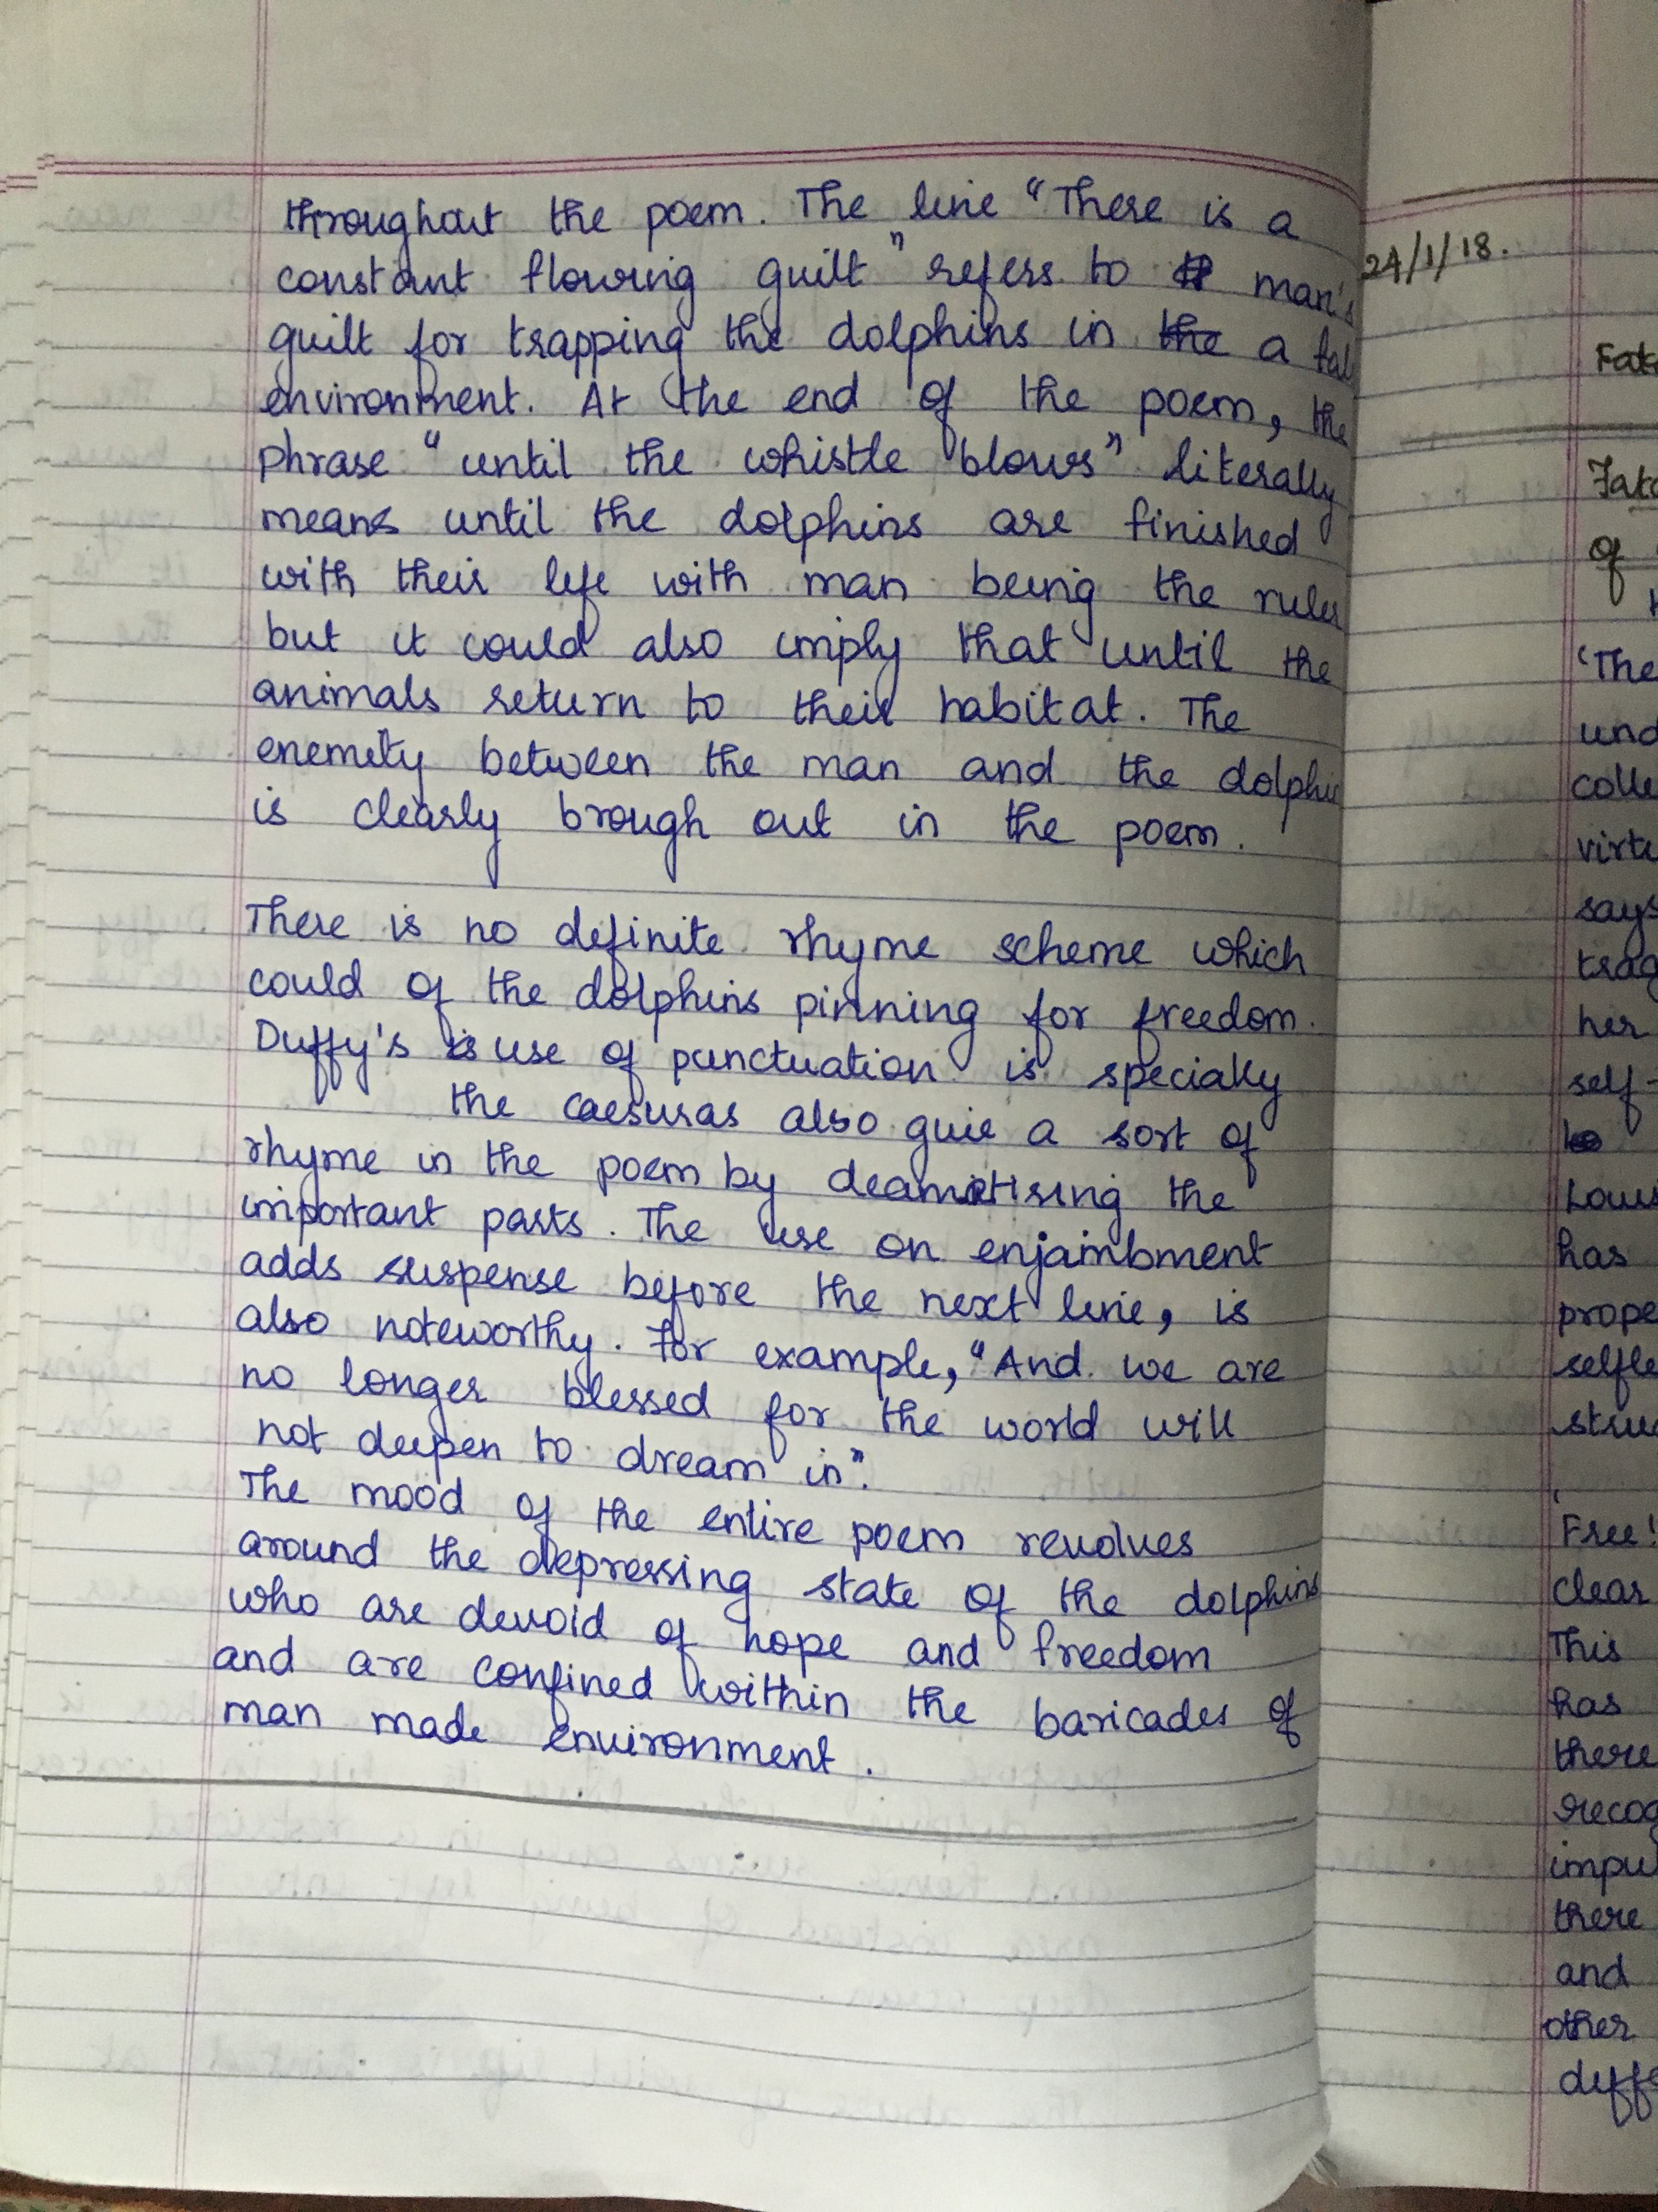 throughout the poem. The line "There is a
constant flowing guilt" refers to man's
guilt for trapping the dolphins in the a
environment. At the end of the poem, the
phrase "until the whistle blows" literally
means until the dolphins are finished
with their life with man being the ruler
but it could also imply that until the
animals return to their habitat. The
enemity between the man and the dolphin
is clearly brough out in the poem.
There is no definite rhyme scheme which
could of the dolphins pinning for freedom.
Duffy's use of punctuation is specialy
the caesuras also give a sort of
rhyme in the poem by deamatising the
important parts. The use on enjambment
adds suspense before the next line, is
also noteworthy. For example, "And we are
no longer blessed for the world will
not deepen to dream in".
The mood of the entire poem revolves
around the depressing state of the dolphins
who are devoid of hope and freedom
and are confined within the baricades of
man made environment.
24/1/18.
of
'The
und
colle
virtu
says
trag
her
self-
Louis
has
prope
selfle
stru
'Free!
clear
This
has
there
recog
impu
there
and
other
diffe